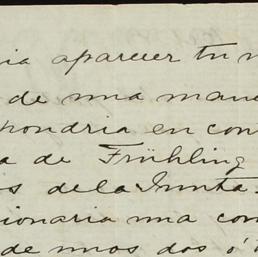 ia aparecer tu n
de una mane
pondria en con
a de Frühling
s de la Junta
ionaria una con
de unos dos ó